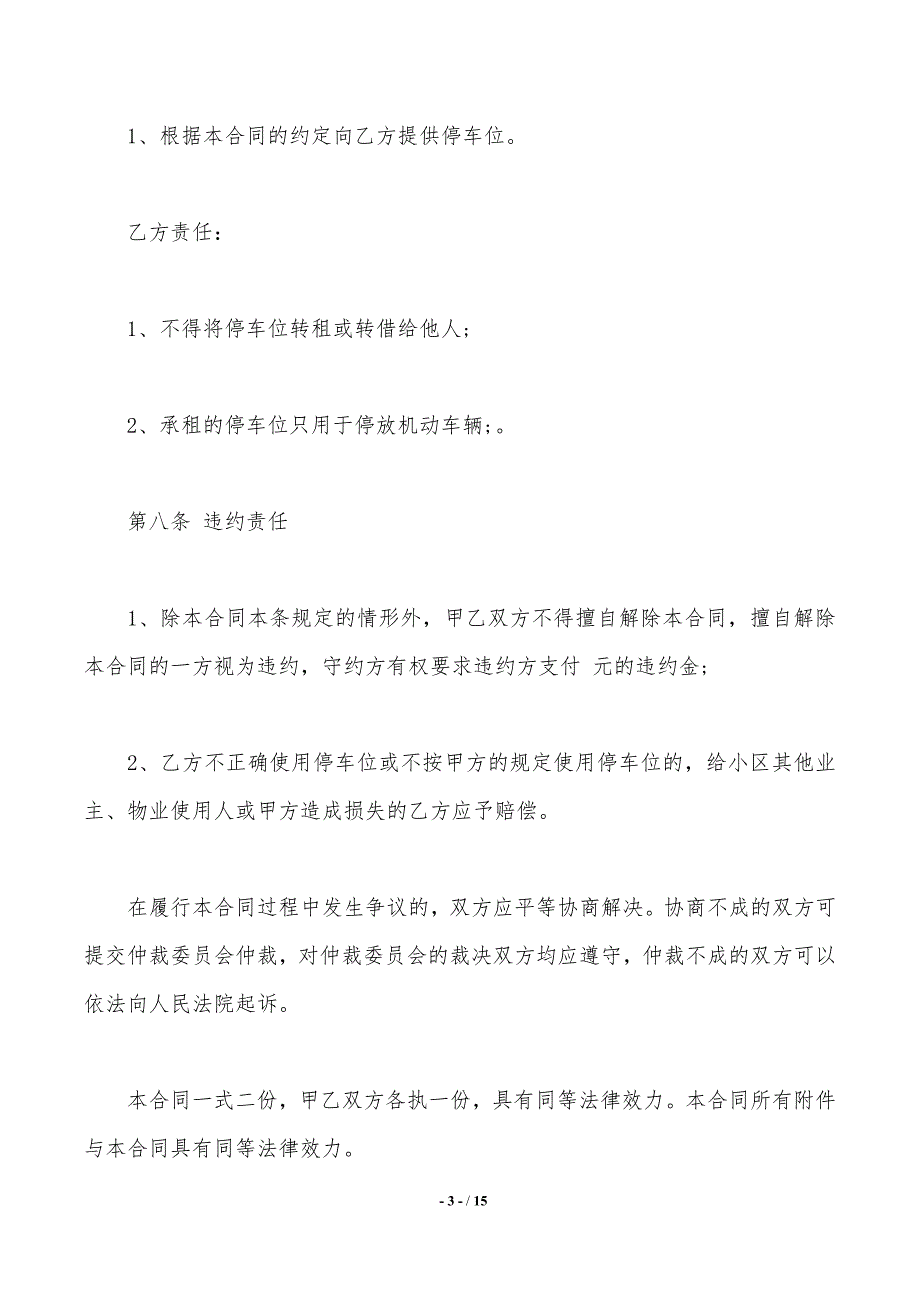 1、根据本合同的约定向乙方提供停车位。
乙方责任:
1、不得将停车位转租或转借给他人;
2、承租的停车位只用于停放机动车辆;。
第八条 违约责任
1、除本合同本条规定的情形外，甲乙双方不得擅自解除本合同，擅自解除
本合同的一方视为违约，守约方有权要求违约方支付 元的违约金;
2、乙方不正确使用停车位或不按甲方的规定使用停车位的，给小区其他业
主、物业使用人或甲方造成损失的乙方应予赔偿。
在履行本合同过程中发生争议的，双方应平等协商解决。协商不成的双方可
提交仲裁委员会仲裁，对仲裁委员会的裁决双方均应遵守，仲裁不成的双方可以
依法向人民法院起诉。
本合同一式二份，甲乙双方各执一份，具有同等法律效力。本合同所有附件
与本合同具有同等法律效力。
- 3 - / 15